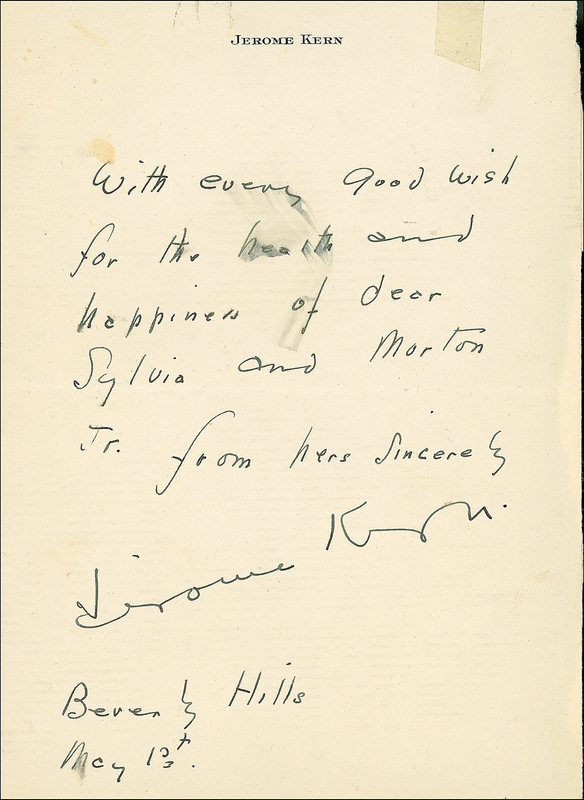 JEROME KERN
With every good wish
for the health and
happiness of dear
Sylvia and Morton
Jr. from hers sincerely
Jerome Kern.
Beverly Hills
May 13t.